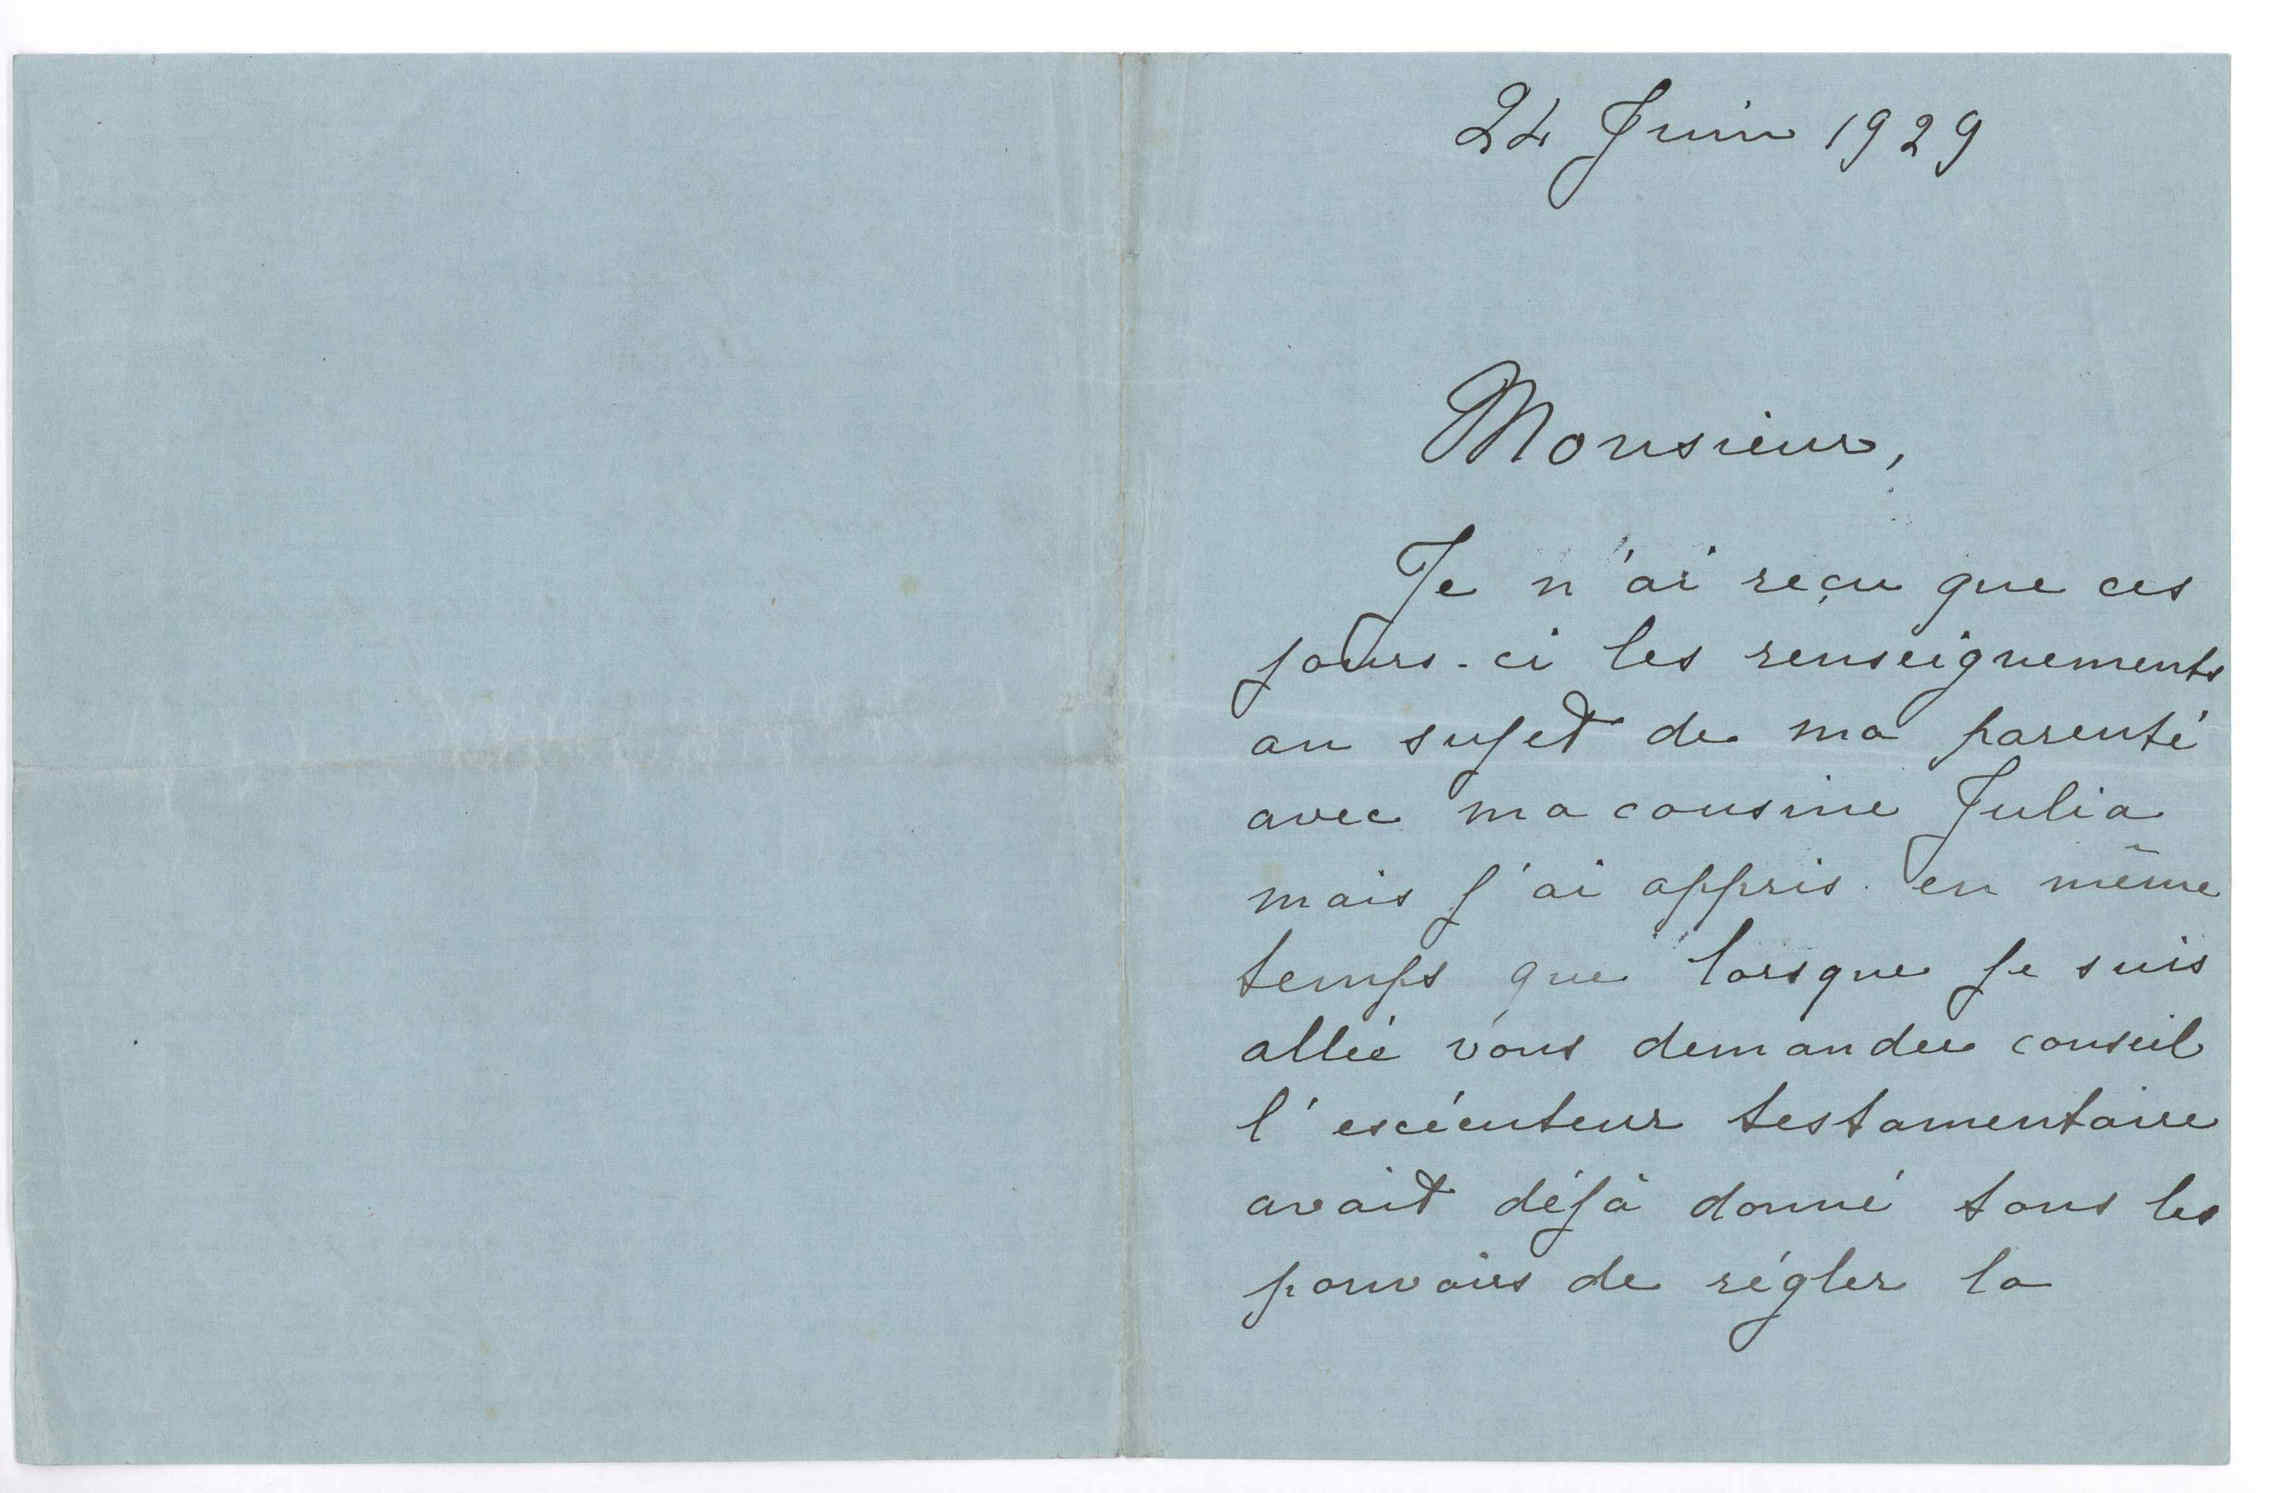 24 Juin 1929
Monsieur,
Je n'ai reçu que ces
jours-ci les renseignements
au sujet de ma parenté
avec ma cousine Julia
mais j'ai appris en même
temps que lorsque je suis
allée vous demander conseil
l'exécuteur testamentaire
avait déjà donné tous les
pouvoirs de régler la